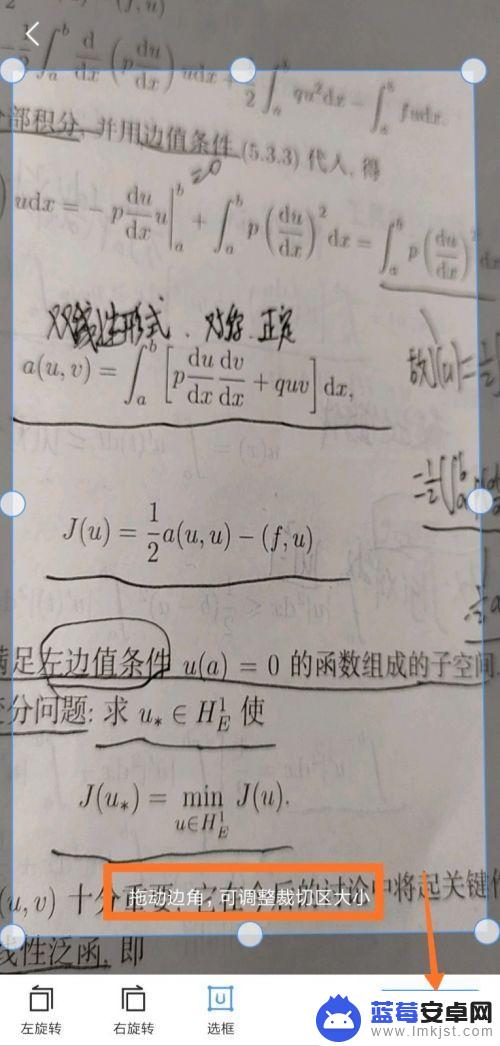 -\frac{1}{2}\int_a^b \frac{d}{dx}\left(p\frac{du}{dx}\right)udx + \frac{1}{2}\int_a^b qu^2dx - \int_a^b fudx.
部积分, 并用边值条件 (5.3.3) 代入, 得
=0
udx = -p\frac{du}{dx}u|_a^b + \int_a^b p\left(\frac{du}{dx}\right)^2dx = \int_a^b p\left(\frac{du}{dx}\right)^2dx
双线性形式、对称、正定
a(u,v) = \int_a^b \left[p\frac{du}{dx}\frac{dv}{dx} + quv\right]dx,
J(u) = \frac{1}{2}a(u,u) - (f,u)
满足左边值条件 u(a) = 0 的函数组成的子空间
变分问题: 求 u_* ∈ H_E^1 使
J(u_*) = \min_{u∈H_E^1} J(u).
(u,v) 十分重要, 它在今后的讨论中将起关键作
拖动边角，可调整裁切区大小
线性泛函, 即
左旋转
右旋转
选框
蓝莓安卓网
www.lmkjst.com